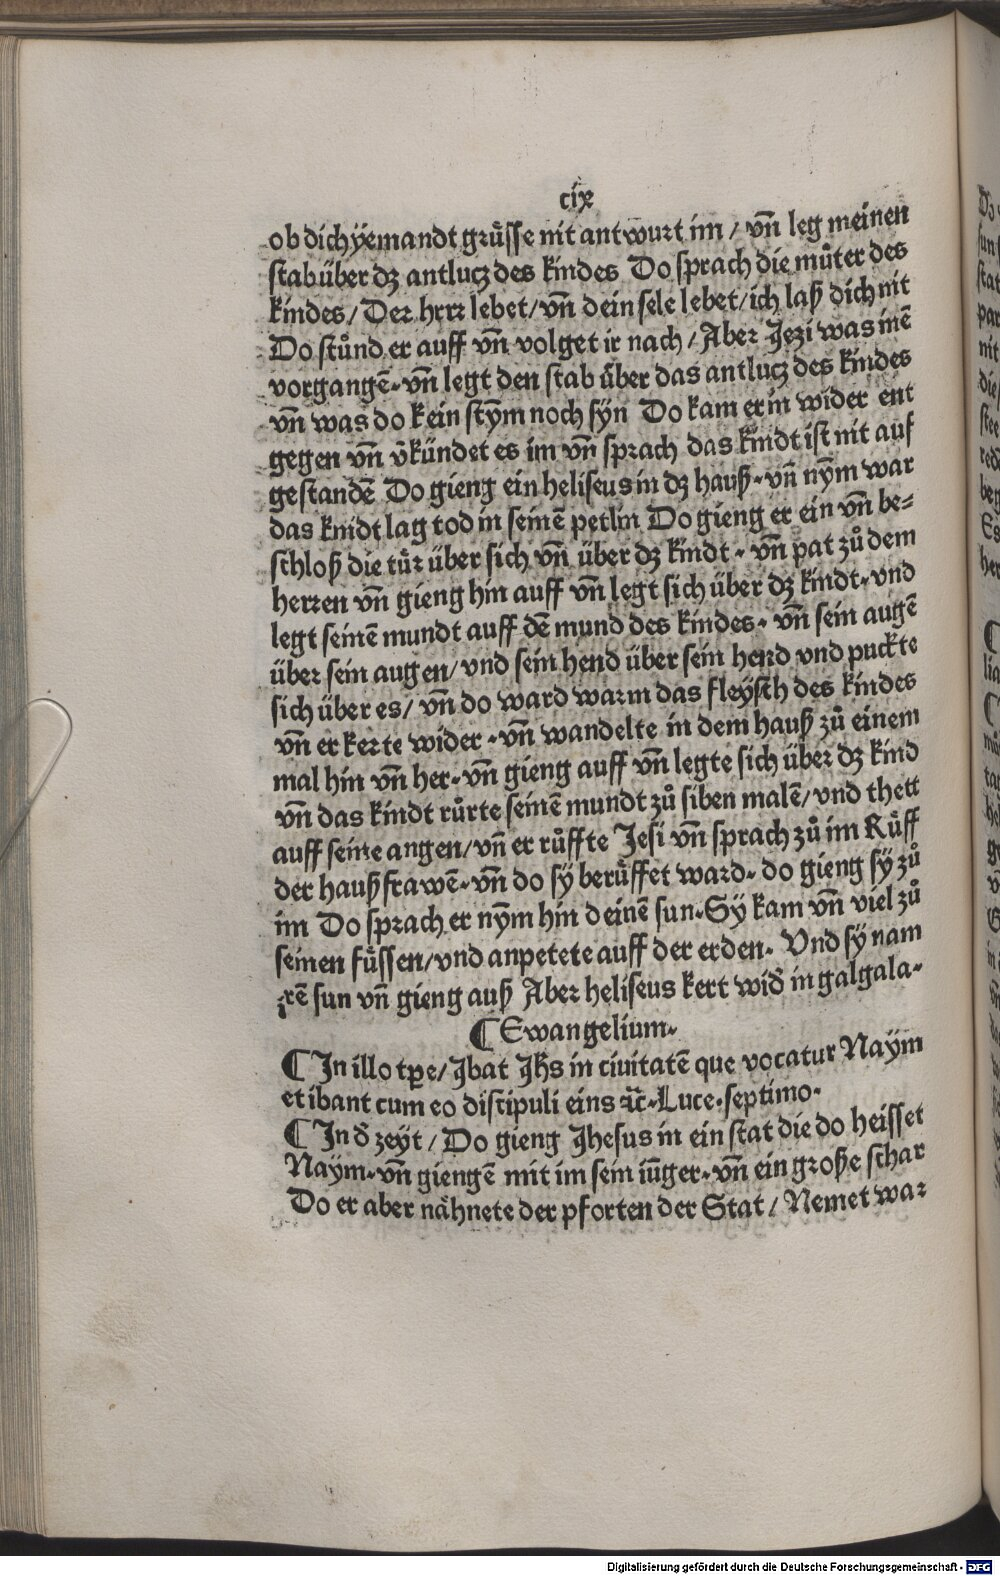 cix
ob dich yemandt grůsse nit antwurt im / vñ leg meinen
stab über dz antlucz des kindes Do sprach die můter des
kindes / Der herr lebet / vñ dein sele lebet / ich laß dich nit
Do stůnd er auff vñ volget ir nach / Aber Jezi was inē
vorgangē. vñ legt den stab über das antlucz des kindes
vñ was do kein stym noch syn Do kam er im wider ent
gegen vñ v̓kündet es im vñ sprach das kindt ist nit auf
gestandē Do gieng ein heliseus in dz hauß. vñ nym war
das knidt lag tod in seinē petlin Do gieng er ein vñ be=
schloß die tůr über sich vñ über dz kindt. vñ pat zů dem
herren vñ gieng hin auff vñ legt sich über dz kindt. vnd
legt seinē mundt auff dē mund des kindes. vñ sein augē
über sein augen / vnd sein hend über sein hend vnd puckte
sich über es / vñ do ward warm das fleysch des kindes
vñ er kerte wider. vñ wandelte in dem hauß zů einem
mal hin vñ her. vñ gieng auff vñ legte sich über dz kind
vñ das kindt růrte seinē mundt zů siben malē / vnd thett
auff seine angen / vñ er růffte Jesi vñ sprach zů im Růff
der haußfrawē. vñ do sy berůffet ward. do gieng sy zů
im Do sprach er nym hin deinē sun. Sy kam vñ viel zů
seinen fůssen / vnd anpetete auff der erden. Vnd sy nam
irē sun vñ gieng auß Aber heliseus kert wid̓ in galgala.
¶ Ewangelium.
¶ In illo tꝑe / Ibat Jhs in ciuitatē que vocatur Naym
et ibant cum eo discipuli eins ꝛc̄. Luce. septimo.
¶ In d̓ zeyt / Do gieng Jhesus in ein stat die do heisset
Naym. vñ giengē mit im sem iüger. vñ ein große schar
Do er aber nåhnete der pforten der Stat / Nemet war
Digitalisierung gefördert durch die Deutsche Forschungsgemeinschaft - DFG